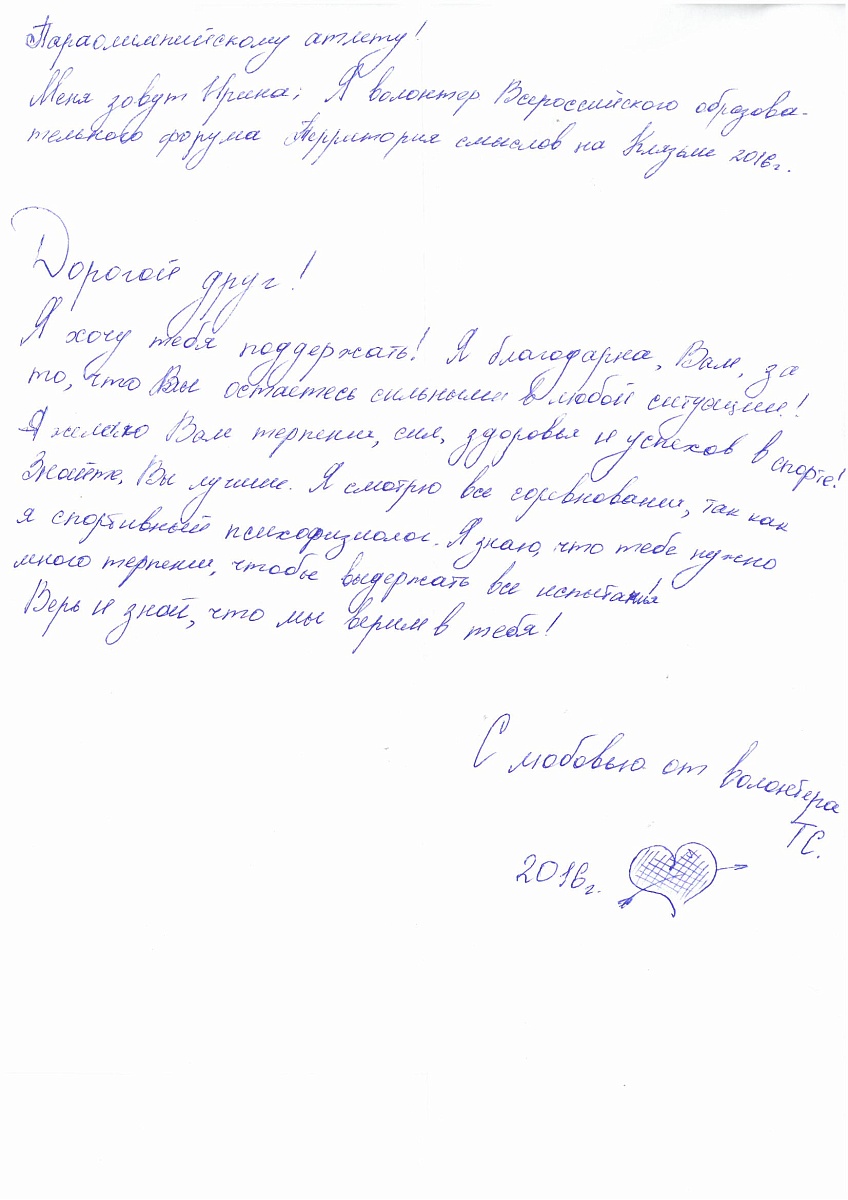 Параолимпийскому атлету!
Меня зовут Ирина; Я волонтер Всероссийского образова-
тельного форума Территория смыслов на Клязьме 2016г.
Дорогой друг!
Я хочу тебя поддержать! Я благодарна, Вам, за
то, что Вы остаетесь сильными в любой ситуации!
Я желаю Вам терпения, сил, здоровья и успехов в спорте!
Знайте, Вы лучшие. Я смотрю все соревнования, так как
я спортивный психофизиолог. Я знаю, что тебе нужно
много терпения, чтобы выдержать все испытания
Верь и знай, что мы верим в тебя!
С любовью от волонтера
ТС.
2016г.